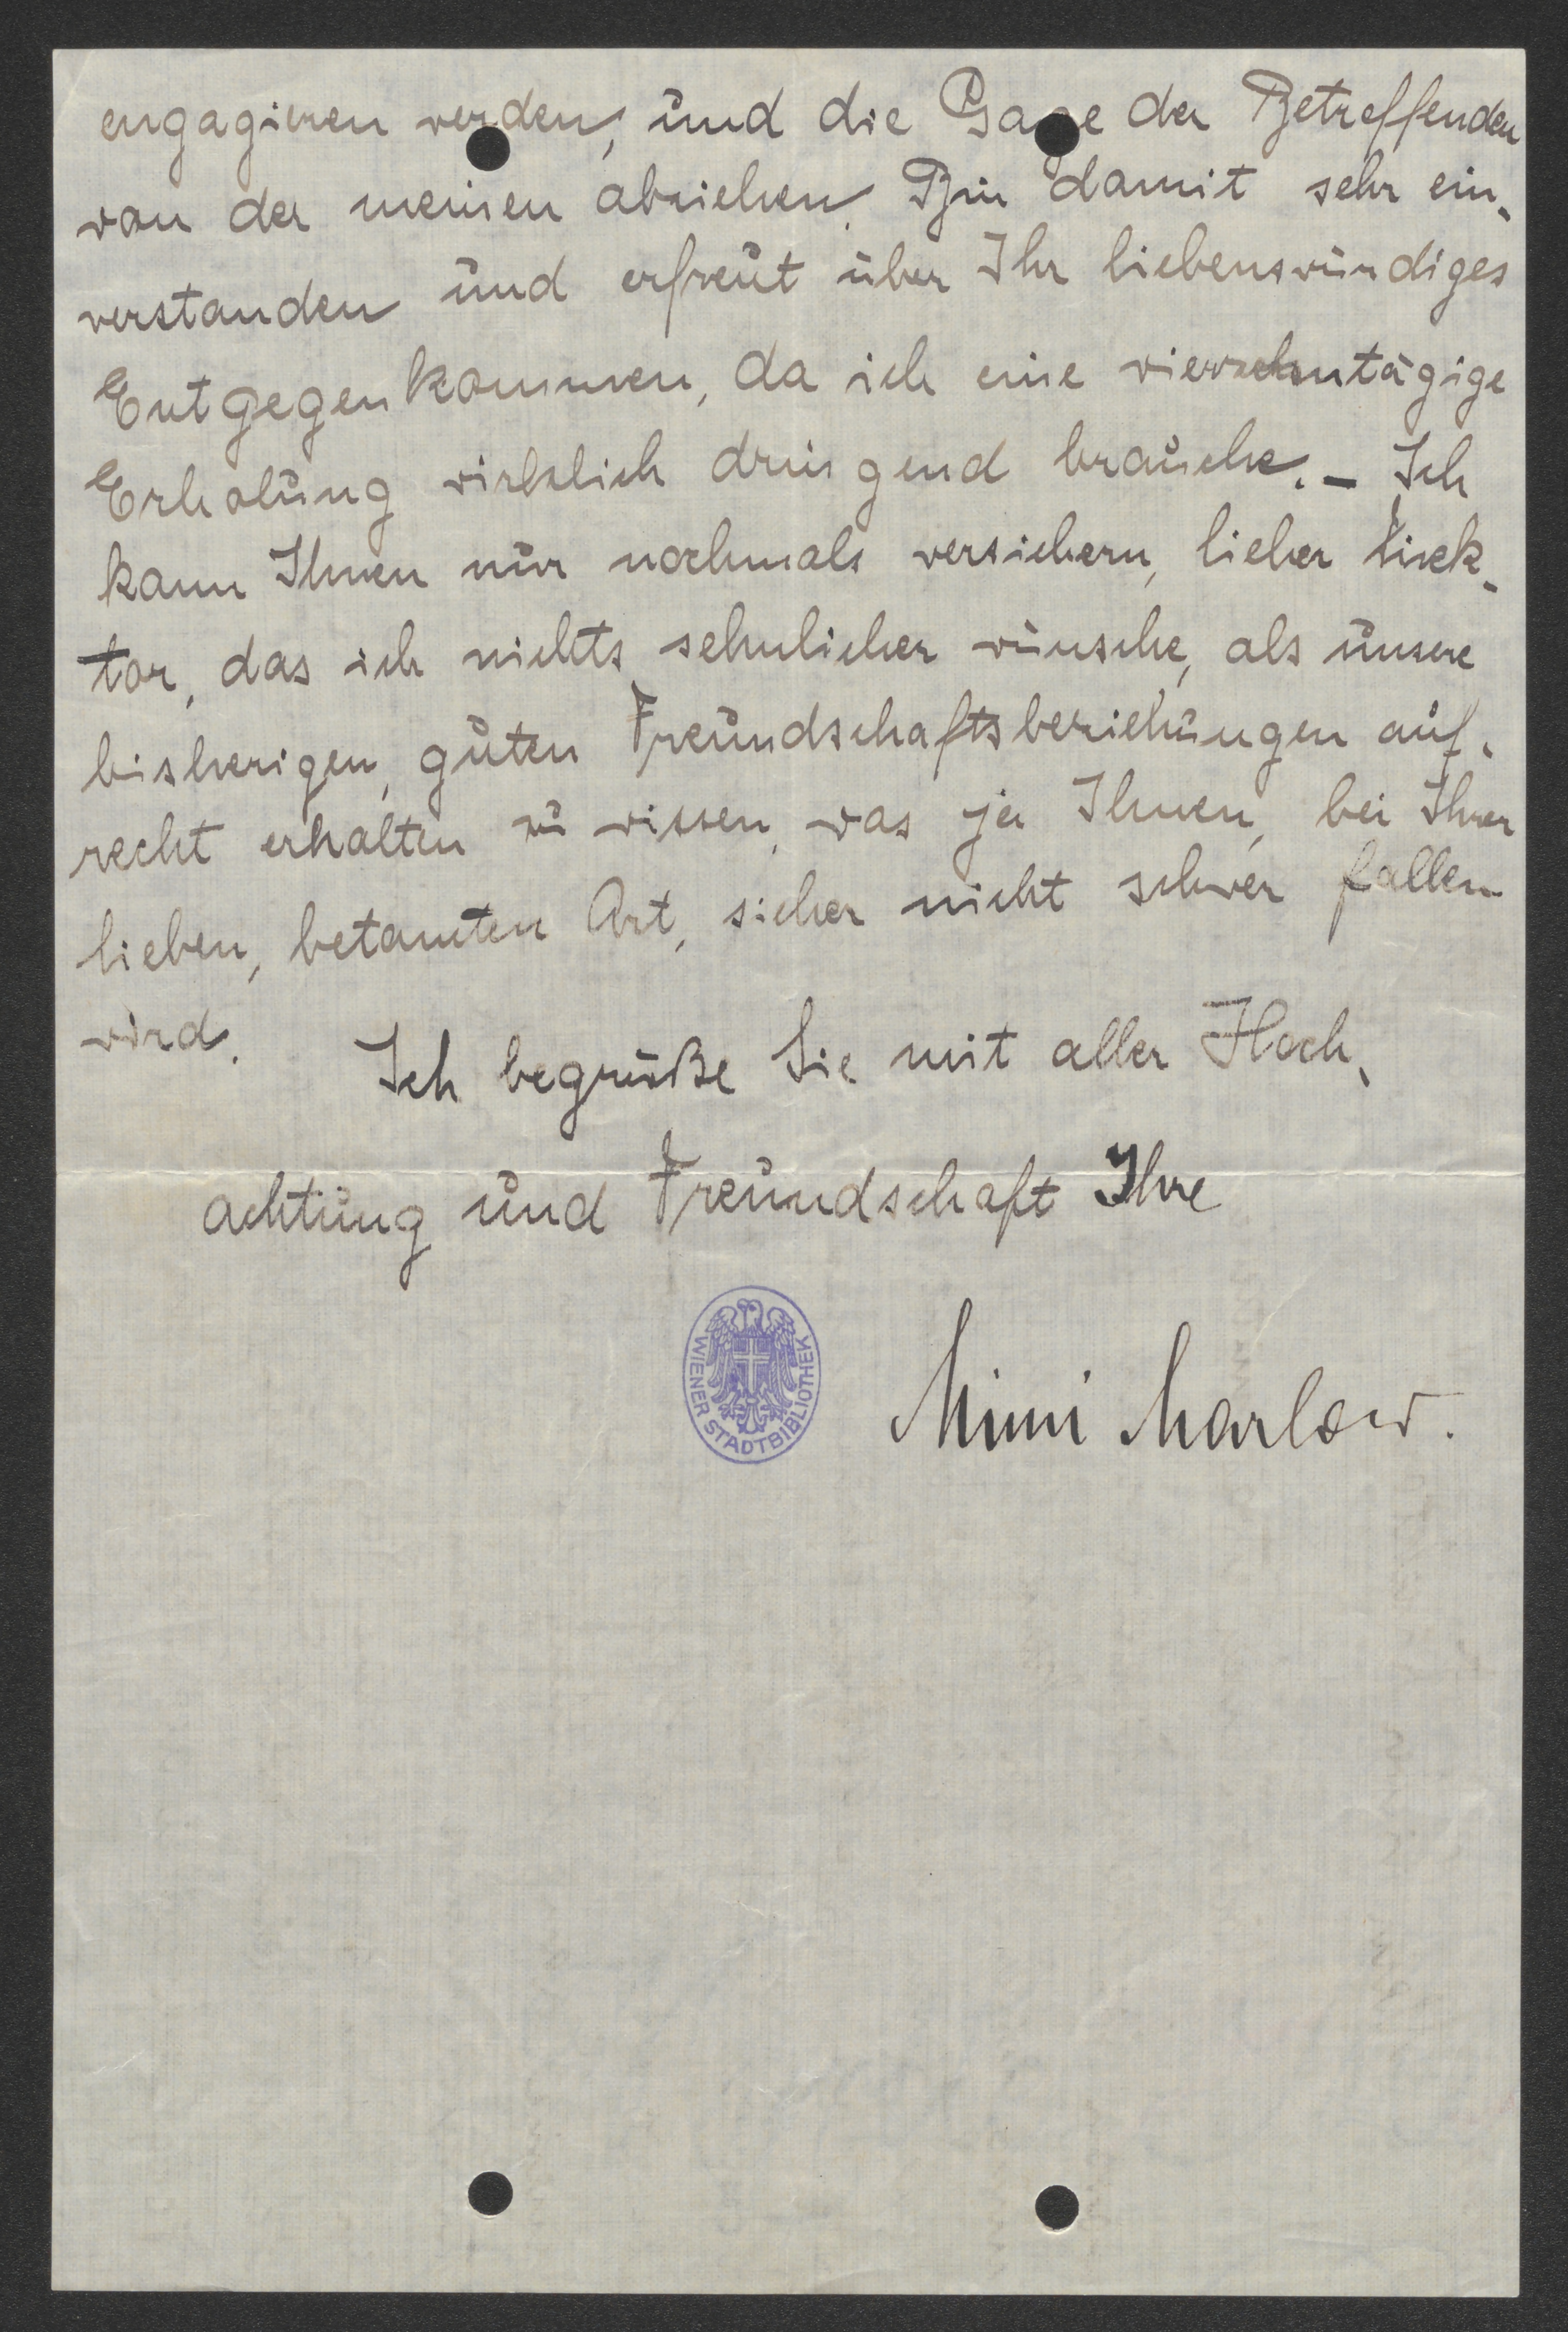 engagieren werden, und die Gage der Betreffenden
von der meinen abziehen. Bin damit sehr ein-
verstanden und erfreut über Ihr liebenswürdiges
Entgegenkommen, da ich eine vierzehntägige
Erholung wirklich dringend brauche. – Ich
kann Ihnen nur nochmals versichern, lieber Direk-
tor, das ich nichts sehnlicher wünsche, als unsere
bisherigen, guten Freundschaftsbeziehungen auf-
recht erhalten zu wissen, was ja Ihnen, bei Ihrer
lieben, betamten Art, sicher nicht schwer fallen
wird.
Ich begrüße Sie mit aller Hoch-
achtung und Freundschaft Ihre
WIENER STADTBIBLIOTHEK
Mimi Marlow.